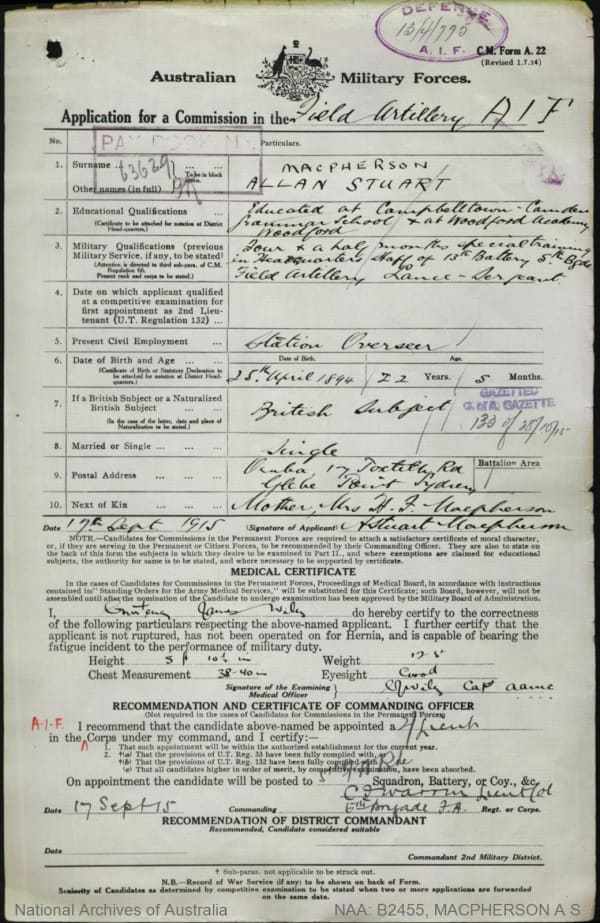 DEFENSE
13/4/775
A.I.F.
C.M. Form A. 22
(Revised 1.7.14)
Australian Military Forces.
Application for a Commission in the Field Artillery AIF
PAY BOOK No
63639
No. Particulars.
1. Surname ... ... ... MACPHERSON
To be in block
Other names (in full) ALLAN STUART
2. Educational Qualifications ... Educated at Campbelltown - Camden
(Certificate to be attached for notation at District Head-quarters.) Grammar School & at Woodford Academy
Woodford
3. Military Qualifications (previous Military Service, if any, to be stated) Four & a half months special training
(Attention is directed to third sub-para. of C.M. Regulation 66. in Headquarters Staff of 13th Battery 5th Bgde
Present rank and corps to be stated.) Field Artillery Lance-Sergeant.
4. Date on which applicant qualified at a competitive examination for first appointment as 2nd Lieutenant (U.T. Regulation 132) ...
5. Present Civil Employment ... Station Overseer
6. Date of Birth and Age ... ... Date of Birth. Age.
(Certificate of Birth or Statutory Declaration to be attached for notation at District Head-quarters.) 25th April 1894 22 Years. 5 Months.
7. If a British Subject or a Naturalized British Subject ... ... ... British Subject
(In the case of the latter, date and place of Naturalization to be stated.)
GAZETTED
C. of A. GAZETTE
133 of 25/10/15
8. Married or Single ... ... ... Single
9. Postal Address ... ... ... 17 Toxteth Rd Battalion Area
Glebe Point Sydney
10. Next of Kin ... ... ... Mother, Mrs H. F. Macpherson
Date 17th Sept 1915 (Signature of Applicant) A Stuart Macpherson
NOTE.—Candidates for Commissions in the Permanent Forces are required to attach a satisfactory certificate of moral character,
or, if they are serving in the Permanent or Citizen Forces, to be recommended by their Commanding Officer. They are also to state on
the back of this form the subjects in which they desire to be examined in Part II., and where exemptions are claimed for educational
subjects, the authority for same is to be stated, and where necessary to be supported by certificate.
MEDICAL CERTIFICATE
In the cases of Candidates for Commissions in the Permanent Forces, Proceedings of Medical Board, in accordance with instructions
contained in "Standing Orders for the Army Medical Services," will be substituted for this Certificate; such Board, however, will not be
assembled until after the nomination of the Candidate to undergo examination has been approved by the Military Board of Administration.
I, James do hereby certify to the correctness
of the following particulars respecting the above-named applicant. I further certify that the
applicant is not ruptured, has not been operated on for Hernia, and is capable of bearing the
fatigue incident to the performance of military duty.
Height 5 ft 10½ in Weight 12-5
Chest Measurement 38-40 in Eyesight Good
Signature of the Examining Medical Officer } Capt aamc
RECOMMENDATION AND CERTIFICATE OF COMMANDING OFFICER
(Not required in the cases of Candidates for Commissions in the Permanent Forces)
A.I.F. I recommend that the candidate above-named be appointed a 2/Lieut
in the Corps under my command, and I certify:—
1. That such appointment will be within the authorised establishment for the current year.
2. †(a) That the provisions of U.T. Reg. 33 have been fully complied with, or
†(b) That the provisions of U.T. Reg. 132 have been fully complied
†(c) That all candidates higher in order of merit, by competitive examination, have been absorbed.
On appointment the candidate will be posted to Squadron, Battery, or Coy., &c.
Lieut Col
Date 17 Sept 15 Commanding 5th Brigade F.A. Regt. or Corps.
RECOMMENDATION OF DISTRICT COMMANDANT
Recommended, Candidate considered suitable
Date
Commandant 2nd Military District.
† Sub-paras. not applicable to be struck out.
N.B.—Record of War Service (if any) to be shown on back of Form.
Seniority of Candidates as determined by competitive examination to be stated when two or more applications are forwarded
on the same date.
National Archives of Australia NAA: B2455, MACPHERSON A S